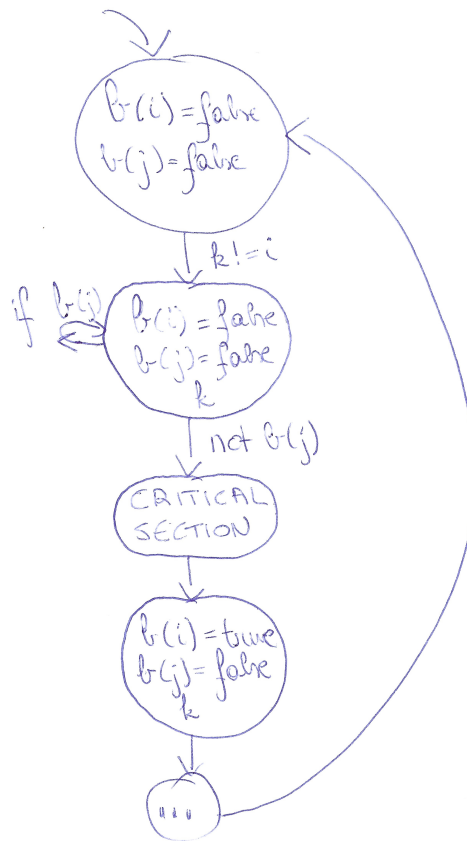 b(i)=false
b(j)=false
k!=i
if b(j)
b(i)=false
b(j)=false
k
not b(j)
CRITICAL
SECTION
b(i)=true
b(j)=false
k
...